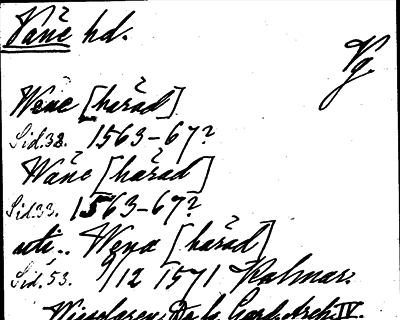 Våne hd.
Vg.
Wene [härad]
Sid. 32. 1563-67?
Wåne [härad]
Sid. 33. 1563-67?
uti.. Wena [härad]
Sid. 53. 1/12 1571 Kalmar.
Gard. Ark. IV.